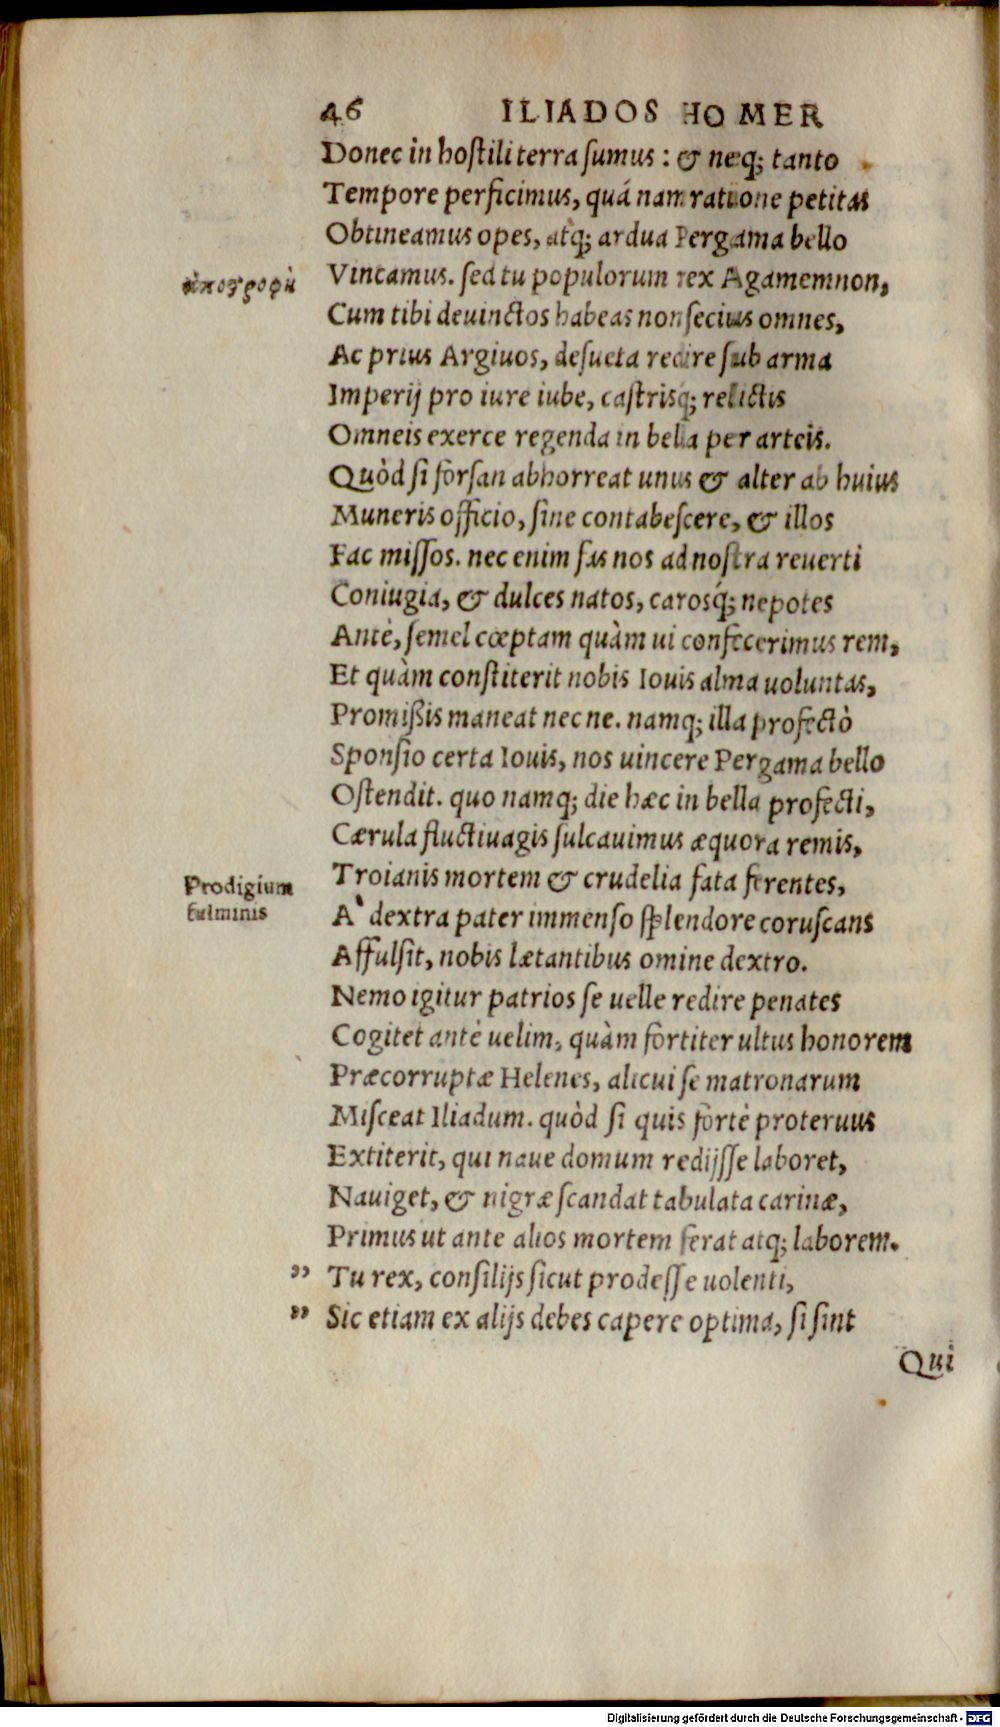 46 ILIADOS HOMER
Donec in hostili terra sumus: & neq; tanto
Tempore perficimus, quá nam ratione petitas
Obtineamus opes, atq; ardua Pergama bello
ἀποστροφὴ
Vincamus. sed tu populorum rex Agamemnon,
Cum tibi deuinctos habeas non secius omnes,
Ac prius Argiuos, desueta redire sub arma
Imperij pro iure iube, castrisq́; relictis
Omneis exerce regenda in bella per arteis.
Quòd si forsan abhorreat unus & alter ab huius
Muneris officio, sine contabescere, & illos
Fac missos. nec enim fas nos ad nostra reuerti
Coniugia, & dulces natos, carosq́; nepotes
Antè, semel cœptam quàm ui confecerimus rem,
Et quàm constiterit nobis Iouis alma uoluntas,
Promißis maneat nec ne. namq; illa profectò
Sponsio certa Iouis, nos uincere Pergama bello
Ostendit. quo namq; die hæc in bella profecti,
Cærula fluctiuagis sulcauimus æquora remis,
Prodigium
fulminis
Troianis mortem & crudelia fata ferentes,
A` dextra pater immenso splendore coruscans
Affulsit, nobis lætantibus omine dextro.
Nemo igitur patrios se uelle redire penates
Cogitet antè uelim, quàm fortiter ultus honorem
Præcorruptæ Helenes, alicui se matronarum
Misceat Iliadum. quòd si quis fortè proteruus
Extiterit, qui naue domum redijsse laboret,
Nauiget, & nigræ scandat tabulata carinæ,
Primus ut ante alios mortem ferat atq; laborem.
" Tu rex, consilijs sicut prodesse uolenti,
" Sic etiam ex alijs debes capere optima, si sint
Qui
Digitalisierung gefördert durch die Deutsche Forschungsgemeinschaft - DFG